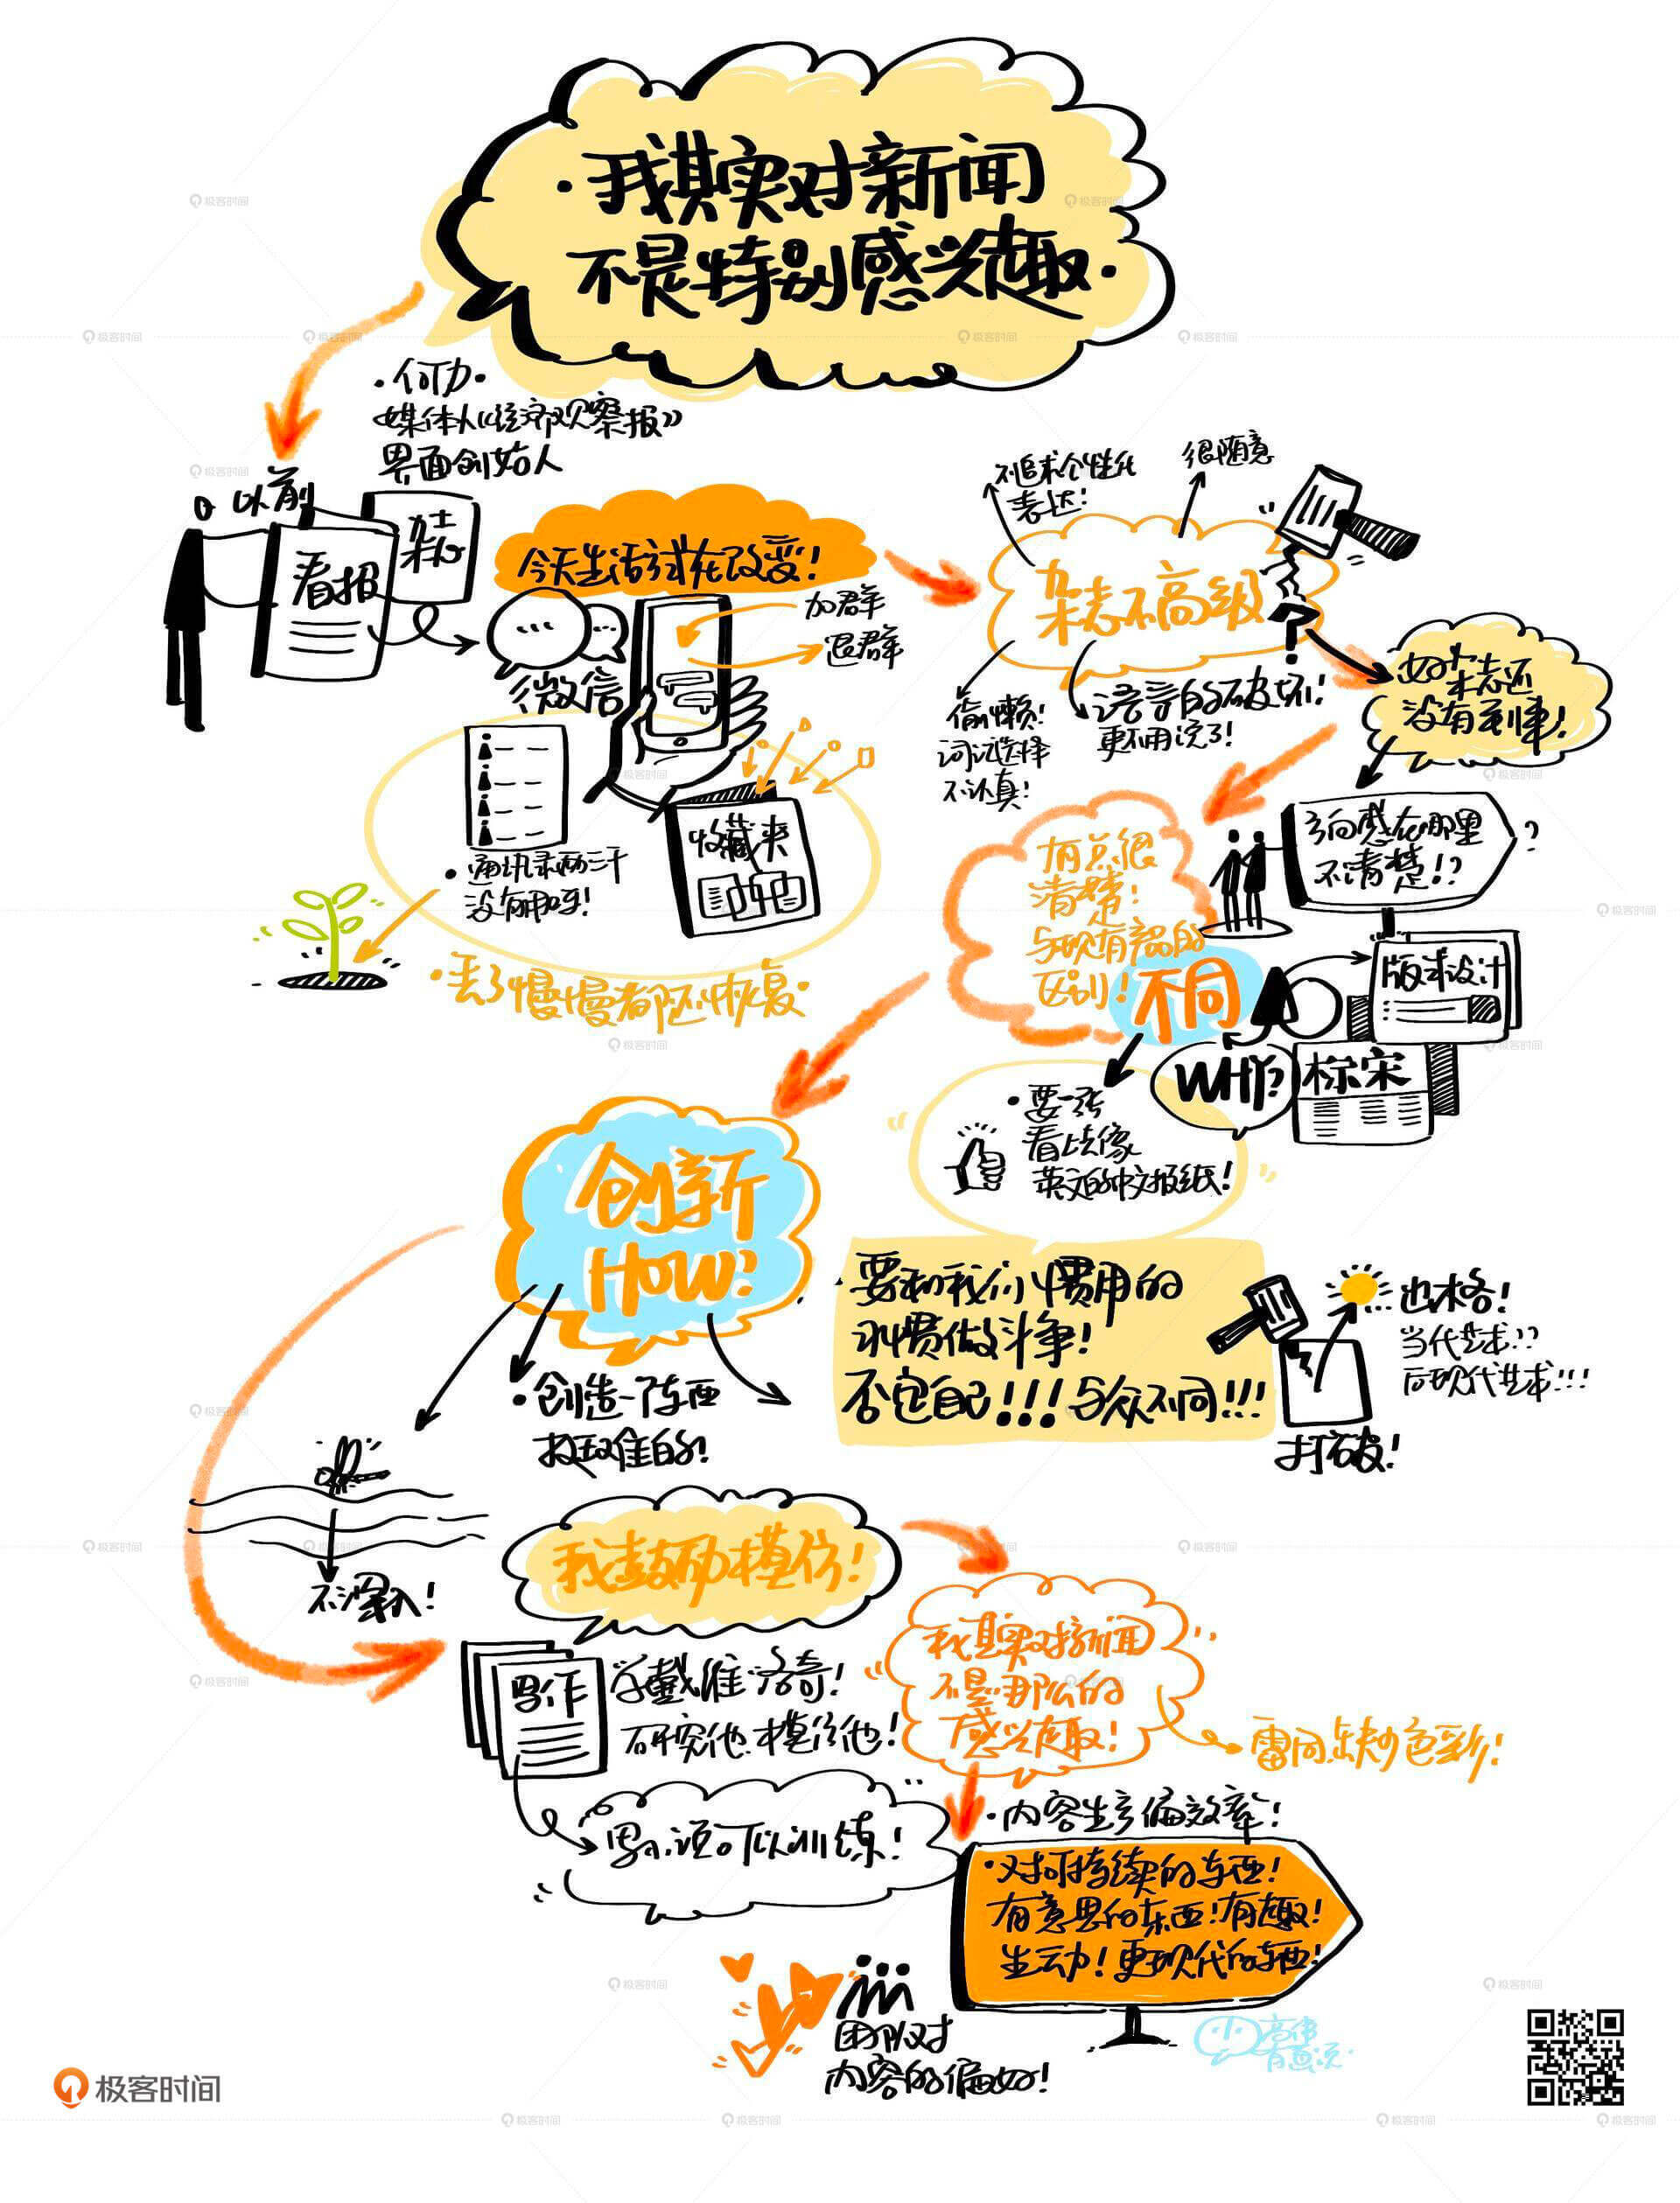 ·我其实对新闻
不是特别感兴趣·
·何力·
媒体人《经济观察报》
界面创始人
以前
看报
杂志
今天生活方式在改变!
加群
退群
微信
·通讯录两三千
没有用吗!
收藏夹
·丢了慢慢都还恢复·
不追求个性化
表达!
很随意
杂志不高级
?
偷懒!
词语选择
不认真!
语言的破坏!
更不用说了!
好杂志还
没有到来!
方向感在哪里
不清楚!?
?
有点很
清楚!
与现有产品的
区别!
不同
版式设计
WHY?
标宋
·要一张
看上去像
英文的中文报纸!
创新
HOW?
·要和我们惯用的
习惯做斗争!
否定自己!!!与众不同!!!
出格!
当代艺术??
后现代艺术!!!
打破!
·创造一个东西
挺难的!
不深入!
我鼓励模仿!
写作
学戴维·洛奇!
研究他.模仿他!
我其实对新闻
不是那么的
感兴趣!
雷同.缺少色彩!
可以训练!
·内容生产偏效率!
·对可持续的东西!
有意思的东西!有趣!
生动!更现代的东西!
团队对
内容的偏好!
高伟
有画说·
极客时间